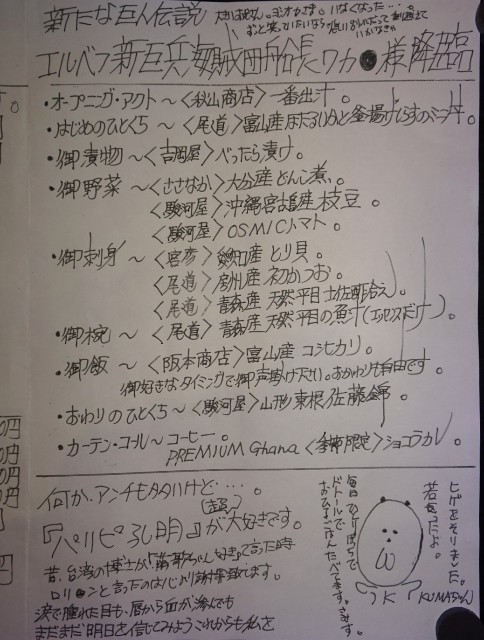 新たな巨人伝説
エルベフ新巨兵海賊団船長ワカ●様降臨
・オープニング・アクト～〈秋山商店〉一番出汁。
・はじめのひとくち～〈尾道〉富山産ほたるいかと釜揚げしらすのミニ丼。
・御漬物～〈吉岡屋〉べったら漬け。
・御野菜～〈ささなか〉大分産どんこ煮。
〈駿河屋〉沖縄宮古島産枝豆。
〈駿河屋〉OSMICトマト。
・御刺身～〈客彦〉愛知産とり貝。
〈尾道〉房州産初かつお。
〈尾道〉青森産天然平目土佐酢冶え。
・御椀～〈尾道〉青森産天然平目の魚汁(エッセスだけ)。
・御飯～〈阪本商店〉富山産コシヒカリ。
御好きなタイミングで御声掛け下さい。おかわりも自由です。
・おわりのひとくち～〈駿河屋〉山形東根佐藤錦。
・カーテン・コール～コーヒー。
PREMIUM Ghana〈季節限定〉ショコラカレ。
何か、アンチもタタいけど・・・・。
(超)
『パリピ孔明』が大好きです。
昔、台湾の博士が
ロリ●ンと言ったのは
涙で腫れた目も、唇から血が滲んでも
まだまだ明日を信じてみようこれからも私を
毎日ひとりぼっちで
ドトールで
おひるごはんたべてます。さみす。
ヒゲをそりました。
若がったよ。
KUMAちゃん